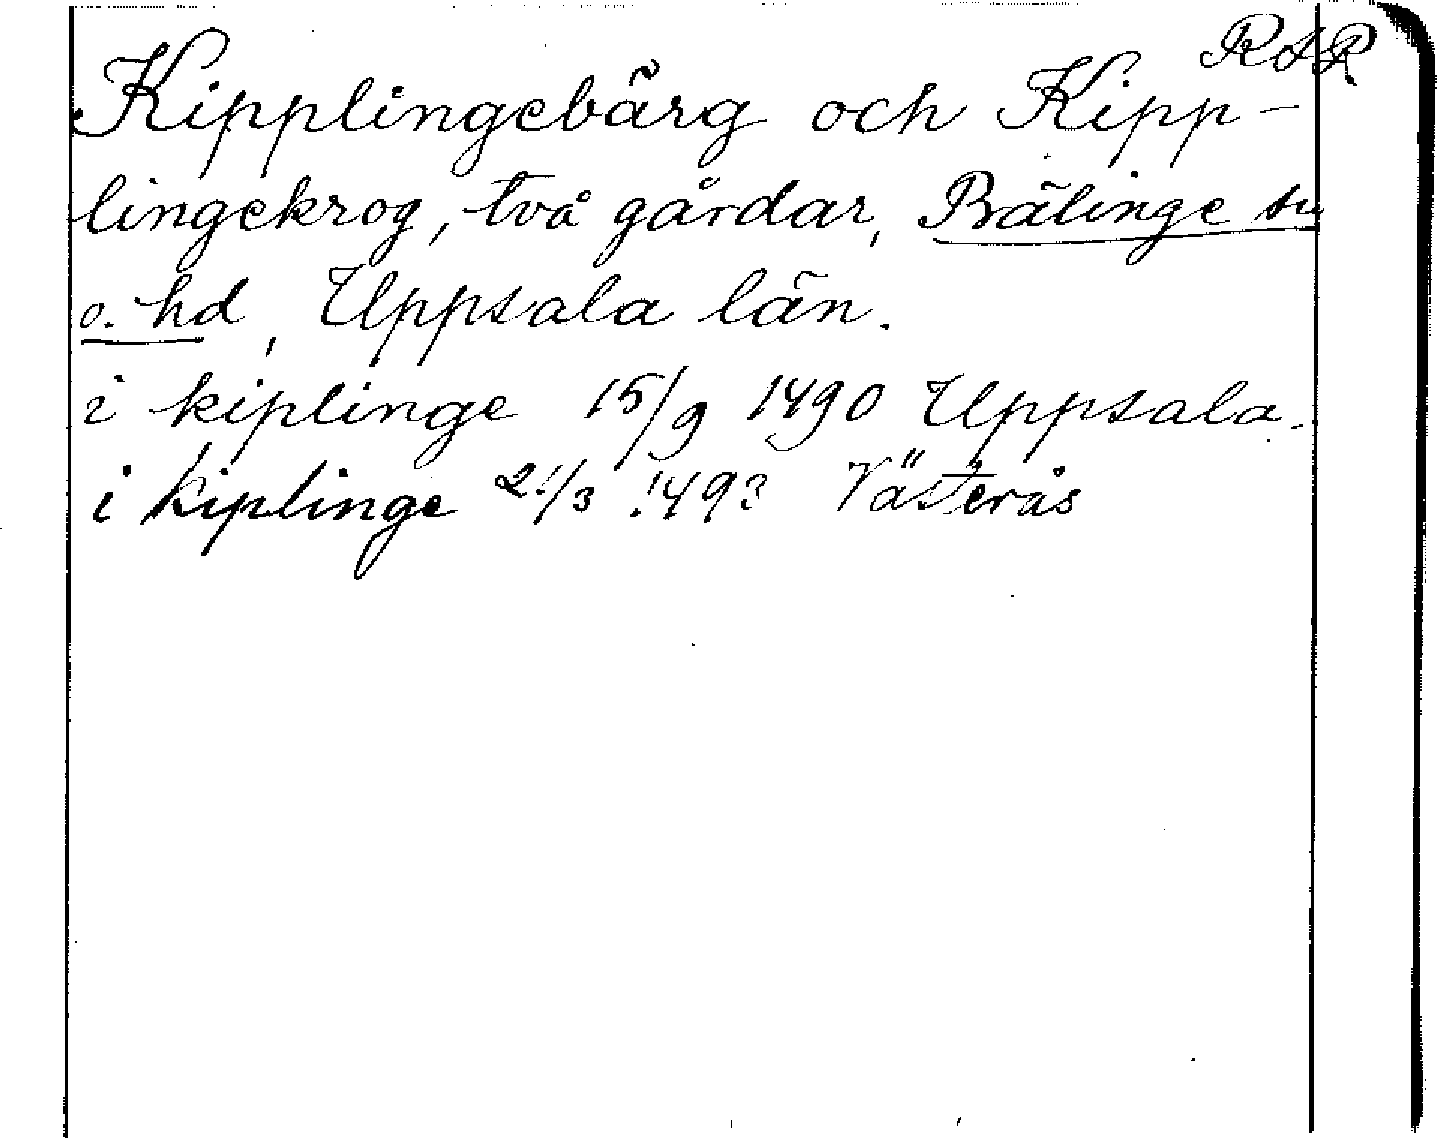 RAP
Kipplingebärg och Kipp-
lingekrog, två gårdar, Bälinge sn
o. hd, Uppsala län.
i kiplinge 15/9 1490 Uppsala.
i kiplinge 21/3 1493 Västerås